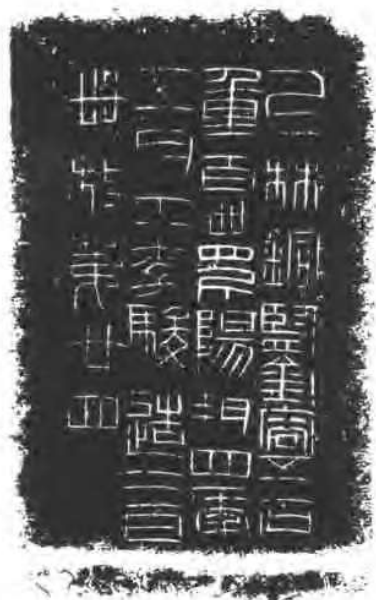 上林銅鑒容五石
重百卅四斤陽朔四年
五月工李駿造二百
卌枚第廿四